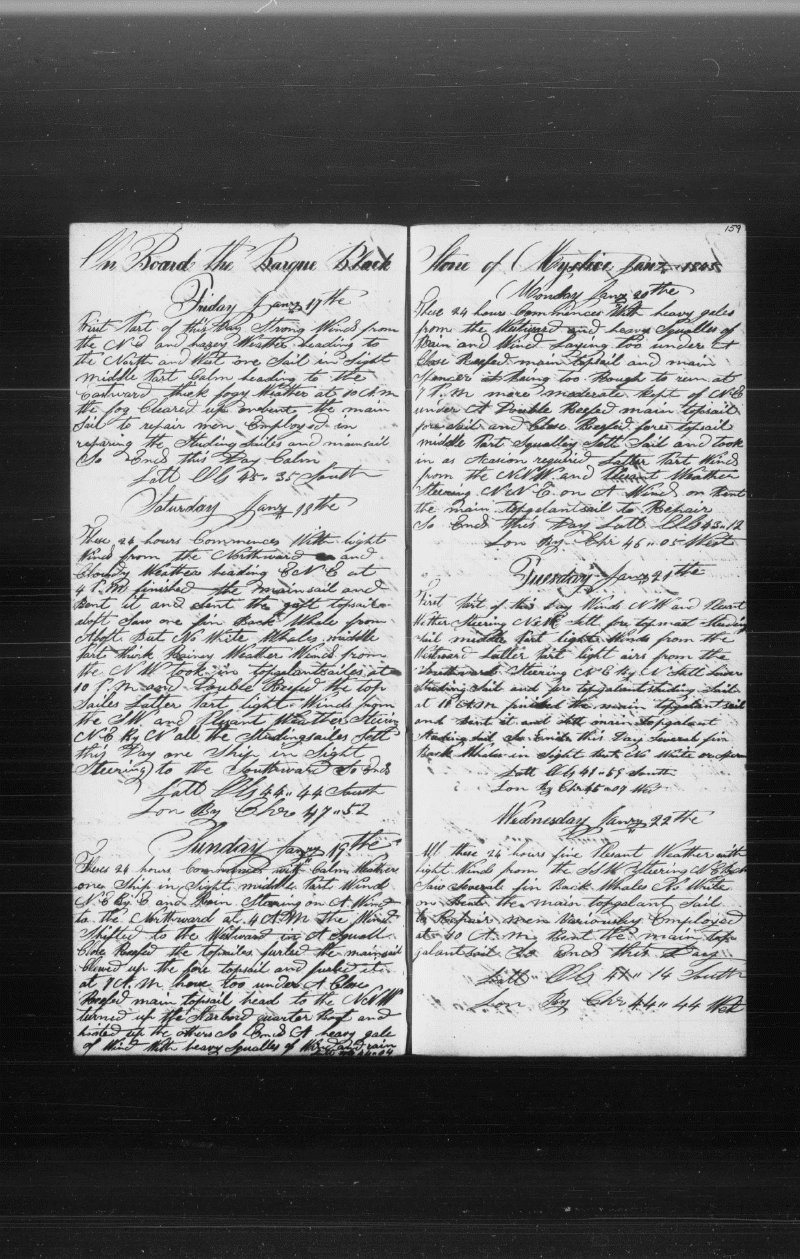 On Board the Barque Black
Friday Janry 17the
First Part of this Day Strong Winds from
the N E and hazey Weather heading to
the North and West one Sail in Sight
middle Part Calm heading to the
Eastward thick fogy Weather at 10 A.M
the fog Cleared up the main
Sail to repair men Employed in
repairing the Studing sailes and mainsail
So Ends this Day Calm
Latt Obs 45 " 35 South
Saturday Janry 18the
These 24 hours Commences With light
Winds from the Northward and
Cloundy Weather heading E N E at
4 P.M finished the mainsail and
Bent it and Sent the gaft topsail
aloft Saw one fin Back Whale from
Aloft But No Rite Whales middle
Part thick Rainey Weather Winds from
the N W took in topgalantsailes at
10 P.M and Double Reefed the top
Sailes Latter Part light Winds from
the S W and plesant Weather Steering
N E By N all the Studingsailes Sett
this Day one Ship in Sight
Steering to the Southward So Ends
Latt Obs 44 " 44 South
Lon By Chro 47 " 52
Sunday Janry 19the
These 24 hours Commences with Calm Weather
one Ship in Sight middle Part Wind
N E By E and Rain Steering on A Wind
to the Northward at 4 A.M the Wind
Shifted to the Westward in A Squall
Close Reefed the topsailes furled the mainsail
Clewed up the fore topsail and furled it
at 8 A.M hove too under A Close
Reefed main topsail head to the N N W
turned up the Larbord quarter Boat and
histed up the others So Ends A heavy gale
of Wind With heavy Squalles of Wind and rain
159
Stone of Mystice Janry 1845
Monday Janry 20the
These 24 hours Commences With heavy gales
from the Westward and heavy Squalles of
Rain and Wind Laying too under A
Close Reefed main topsail and main
Spencer it Being too Rough to run at
7 P.M more moderate Kept of N E
under A Double Reefed main topsail
fore Sail and Close Reefed fore topsail
middle Part Squalley Sett Sail and took
in as Ocasion required Latter Part Winds
from the N N W and Plesant Weather
Steering N E N E on A Wind on Bent
the main topgalantsail to Repair
So Ends this Day Latt Obs 43 " 12
Lon By Chr 46 " 05 West
Tuesday Janry 21the
First Part of this Day Winds N W and Plesant
Wether Steering Sett fore topmast Studing
Sail middle Part light Winds from the
Westward Latter Part light airs from the
Southward Steering N E By N Sett Lower
Studing Sail and fore topgalant studing Sail
at 10 A.M finished the main topgalant sail
and Bent it and Sett main topgalant
Studing sail So Ends this Day Several fin
Back Whales in Sight But No Write or Sperm
Latt Obs 41 " 59 South
Lon By Chr 45 " 07 West
Wednesday Janry 22the
All these 24 hours fine Plesant Weather with
light Winds from the S S W Steering N E By N
Saw Severale fin Back Whales No Write
on Bent the main topgalant Sail
to Repair men Variousley Employed
at 10 A.M Bent the main top
galantsail So Ends this Day
Latt Obs 41 " 14 South
Lon By Chr 44 " 44 West